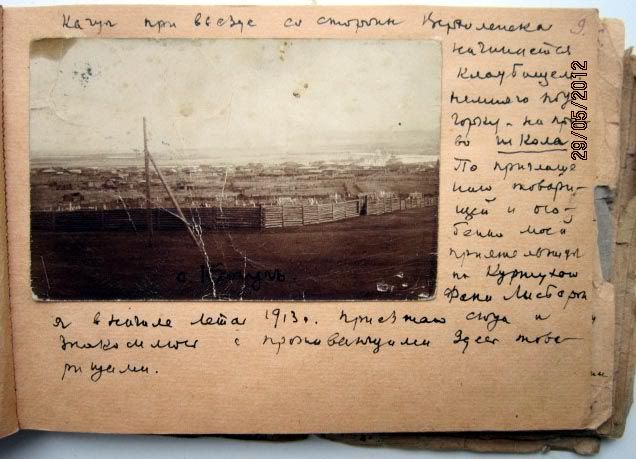 Качуг при въезде со стороны Верхоленска 9.
начинается
кладбищем
немного под
горку. на пра
во школа
По приглаше
нию товари-
щей и осо-
бенно моей
приятельницы
по
Фени
с. Качугъ.
я в начале лета 1913г. приезжаю сюда и
знакомлюсь с проживающими здесь това-
рищами.
29/05/2012